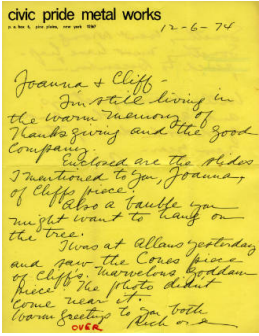 civic pride metal works
12-6-74
Joanna & Cliff -
I'm still living in
the warm memory of
Thanksgiving and the good
company.
Enclosed are the slides
I mentioned to you, Joanna,
of Cliff's piece.
Also a bauble you
might want to hang on
the tree.
I was at Allans yesterday
and saw the Cones piece
of Cliff's. Marvelous goddam
piece. The photo didn't
come near it.
Warm greeting to you both
OVER